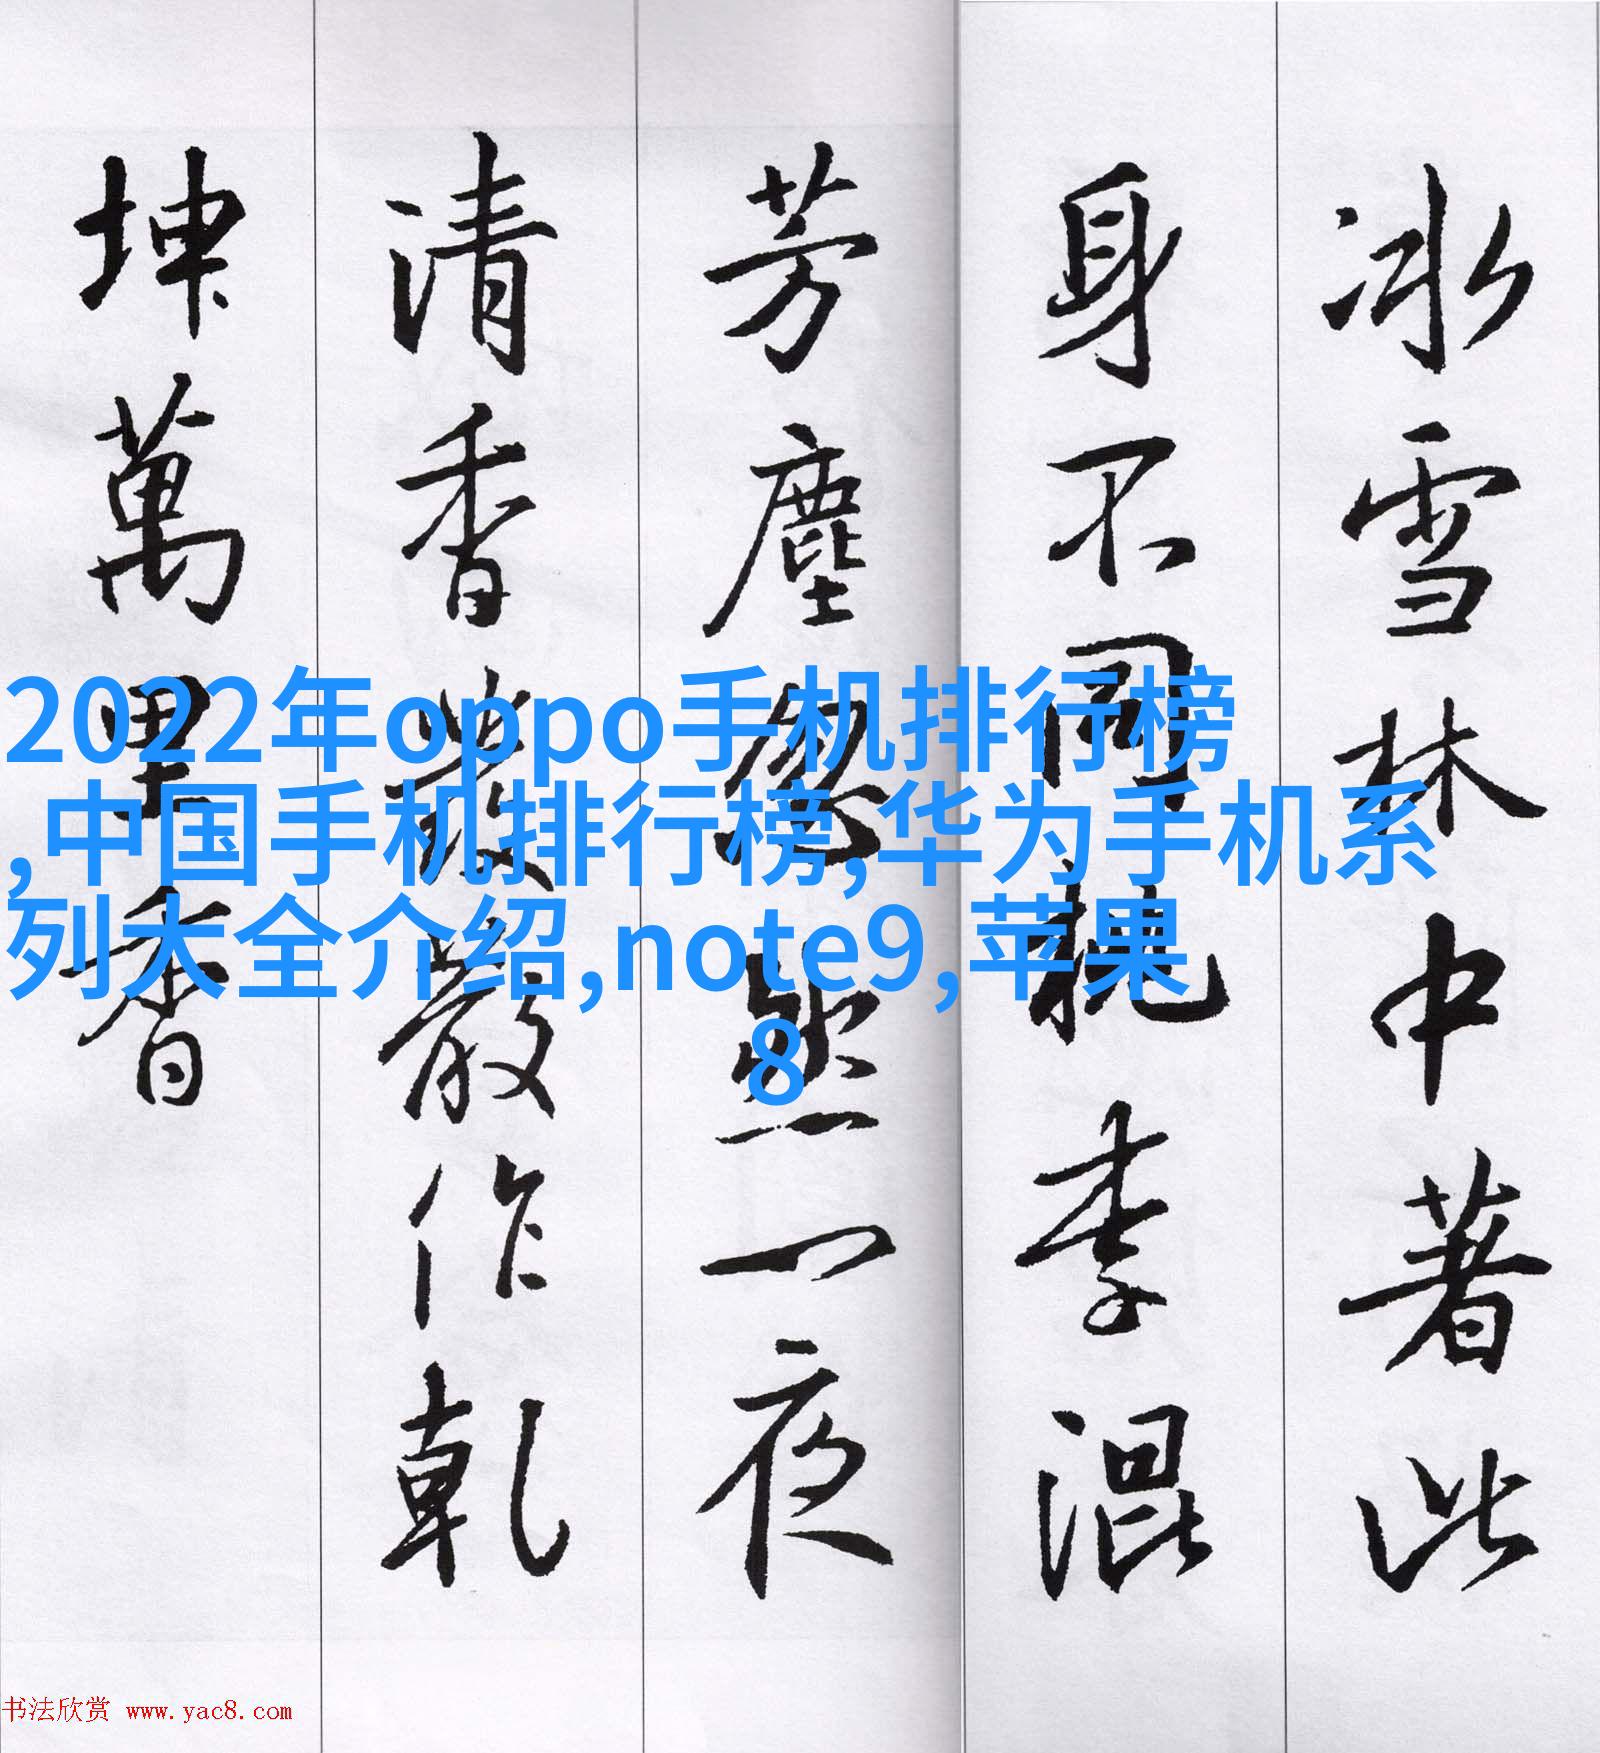 冰雪林中著此
身不同桃李混
芳塵忽然一夜
清香發散作乾
坤萬里香
2022年oppo手机排行榜
,中国手机排行榜,华为手机系
列大全介绍,note9,苹果
8
书法欣赏 www.yac8.com